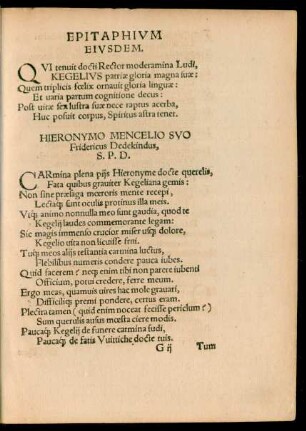 EPITAPHIVM
EIVSDEM.
QVI tenuit docti Rector moderamina Ludi,
KEGELIVS patriæ gloria magna suæ:
Quem triplicis fœlix ornauit gloria linguæ:
Et uaria parrum cognitione decus:
Post uitæ sex lustra suæ nece raptus acerba,
Huc posuit corpus, Spiritus astra tenet.
HIERONYMO MENCELIO SVO
Fridericus Dedekindus,
S. P. D.
CARmina plena pijs Hieronyme docte querelis,
Fata quibus grauiter Kegeliana gemis:
Non sine præsaga mœroris mente recepi,
Lectaq́ sunt oculis protinus illa meis.
Vtq́ animo nonnulla meo sunt gaudia, quod te
Kegelij laudes commemorante legam:
Sic magis immenso crucior miser usq́ dolore,
Kegelio uita non licuisse frui.
Tuq́ meos alijs testantia carmina luctus,
Flebilibus numeris condere pauca iubes.
Quid facerem? neq́ enim tibi non parere iubenti
Officium, potui credere, ferre meum.
Ergo meas, quamuis uires hac mole grauati,
Difficiliq́ premi pondere, certus eram.
Plectra tamen (quid enim noceat fecisse periclum?)
Sum querulis ausus mœsta ciere modis.
Paucaq́ Kegelij de funere carmina fudi,
Paucaq́ de fatis Vuittiche docte tuis.
G ij Tum